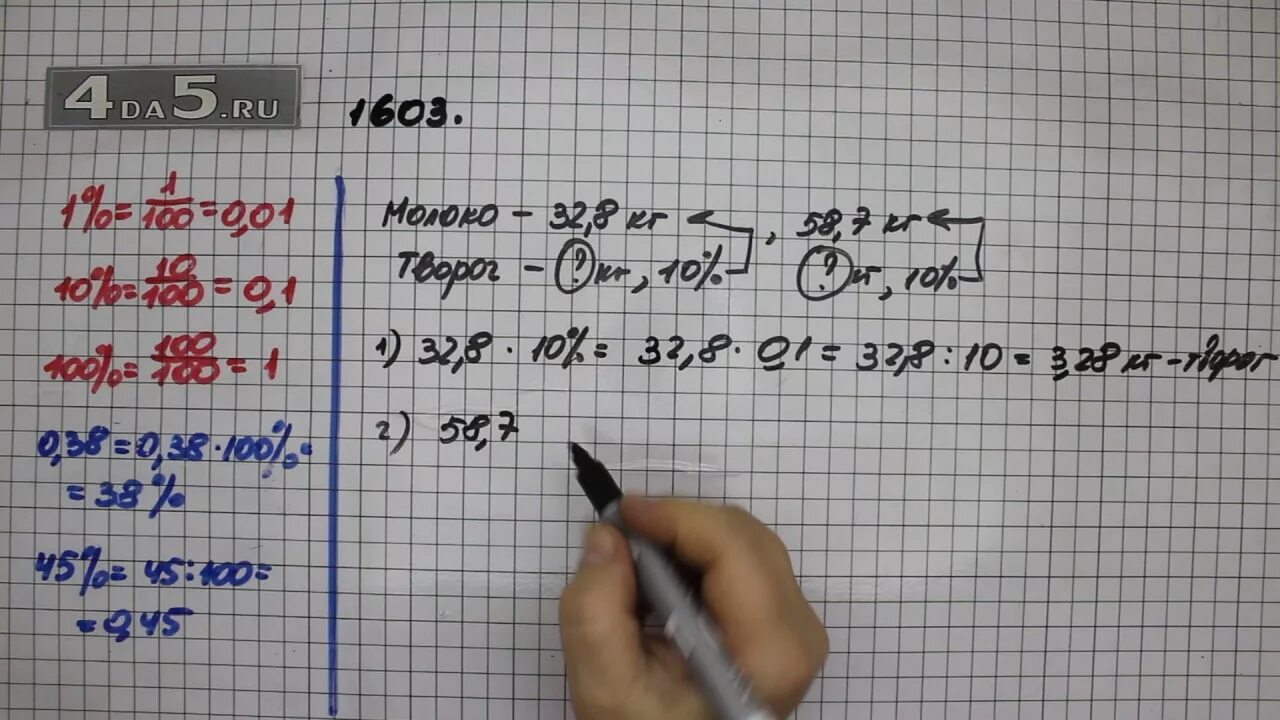 4DA5.RU
1603.
1% = 1/100 = 0,01
10% = 10/100 = 0,1
100% = 100/100 = 1
0,38 = 0,38 · 100% =
= 38%
45% = 45 : 100 =
= 0,45
Молоко - 32,8 кг, 58,7 кг
Творог - ? кг, 10% ? кг, 10%
1) 32,8 · 10% = 32,8 · 0,1 = 32,8 : 10 = 3,28 кг - творог
2) 58,7